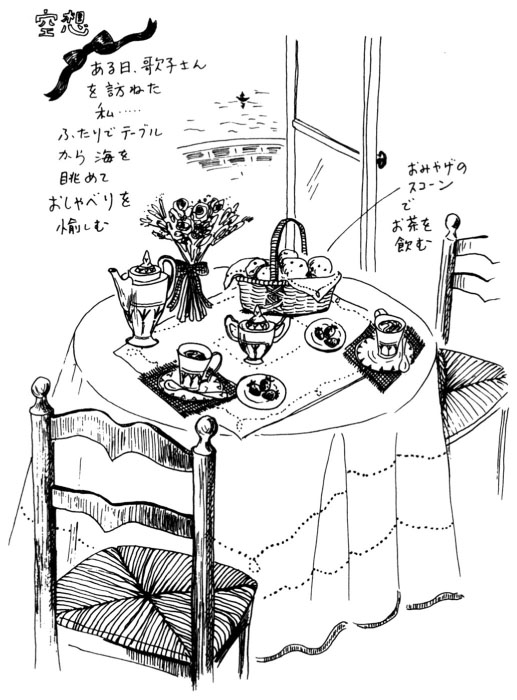 空想
ある日、歌子さん
を訪ねた
私……
ふたりでテーブル
から海を
眺めて
おしゃべりを
愉しむ
おみやげの
スコーン
で
お茶を
飲む